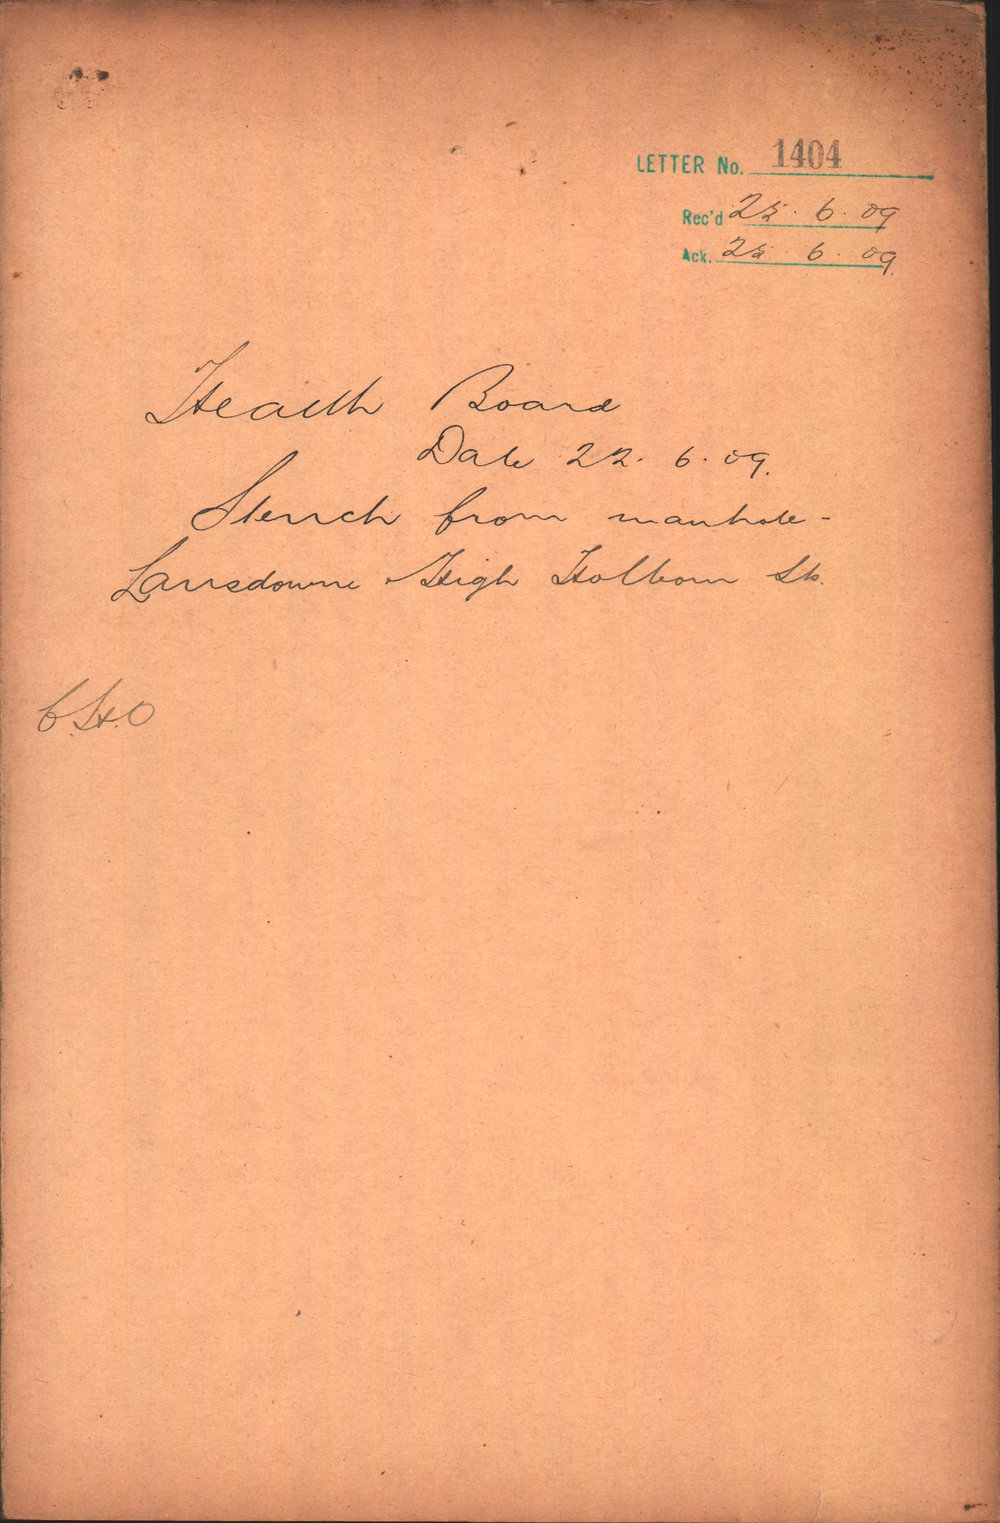 LETTER No. 1404
Rec'd 25. 6. 09
Ack. 25. 6. 09.
Health Board
Date 22. 6. 09.
Stench from manhole -
Lansdowne & High Holborn Sts.
C.H.O